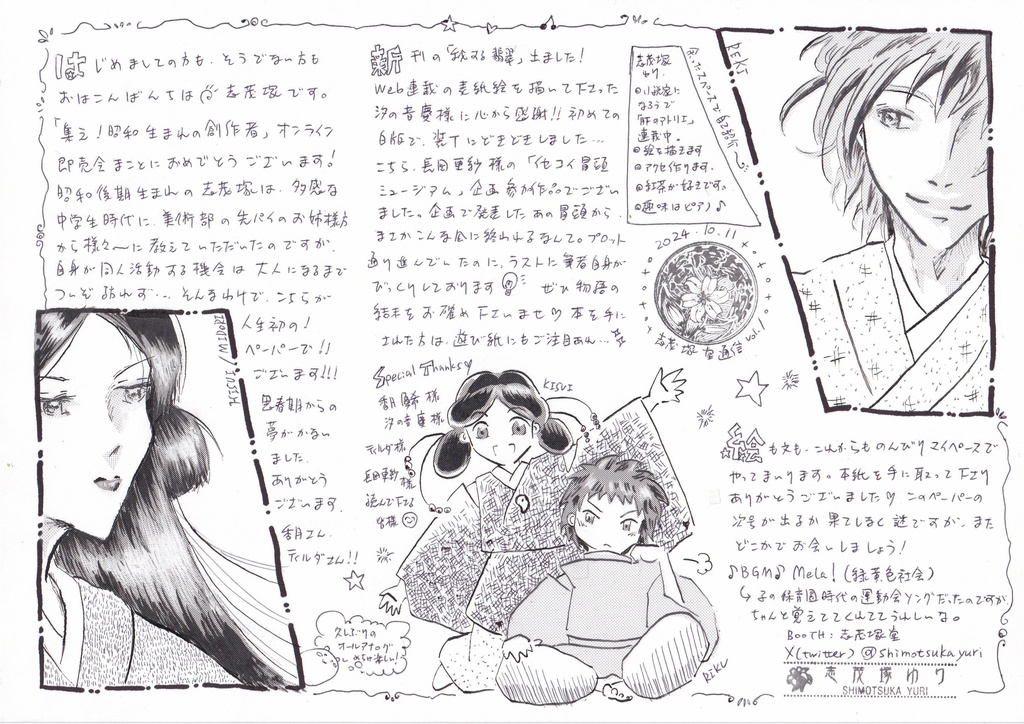 はじめましての方も、そうでない方も
おはこんばんちは 志茂塚です。
「集え！昭和生まれの創作者」オンライン
即売会まことにおめでとうございます！
昭和後期生まれの志茂塚は、多感な
中学生時代に、美術部の先パイのお姉様方
から様々〜に教えていただいたのですが、
自身が同人活動する機会は大人になるまで
ついぞ訪れず…。そんなわけで、こちらが
人生初の！
ペーパーで!!
ございます!!!
思春期からの
夢がかない
ました。
ありがとう
ございます。
香月さん、
ティルダさん!!
MIDORI / INJISH
新刊の「恋する翡翠」出ました！
Web連載の表紙絵を描いて下さった
汐の音慶様に心から感謝!! 初めての
自版で、装丁にどきどきしました…
こちら、長田亜紗様の「イセコイ冒頭
ミュージアム」企画参加作品でござい
ました。企画で発表したあの冒頭から
まさかこんな風に終われるなんて。プロット
通り進んでいたのに、ラストに筆者自身が
びっくりしております ぜひ物語の
結末をお確め下さいませ♡ 本を手に
された方は、遊び紙にもご注目あれ…
Special Thanks♡
香月 様
汐の音慶 様
ティルダ様
長田亜紗様
読んで下さる
皆様
KISUI
RIKU
久しぶりの
オールアナログ
めちゃ楽しい！
余ったスペースで自己紹介〜
志茂塚
ゆり
◎小説家に
なろうで
「肝のアトリエ」
連載中。
◎絵を描きます
◎アクセ作ります。
◎紅茶が好きです。
◎趣味はピアノ♪
2024.10.11
志茂塚 通信 vol.1
REKI
絵も文も、これからものんびりマイペースで
やってまいります。本紙を手に取って下さり
ありがとうございました♡ このペーパーの
次号が出るか果てしなく謎ですが、また
どこかでお会いしましょう！
♪BGM♪ Mela!（緑黄色社会）
↳子の保育園時代の運動会ソングだったのですが
ちゃんと覚えててくれててうれしいな。
BOOTH：志茂塚室
X(twitter) @shimotsukayuri
志茂塚ゆり
SHIMOTSUKA YURI